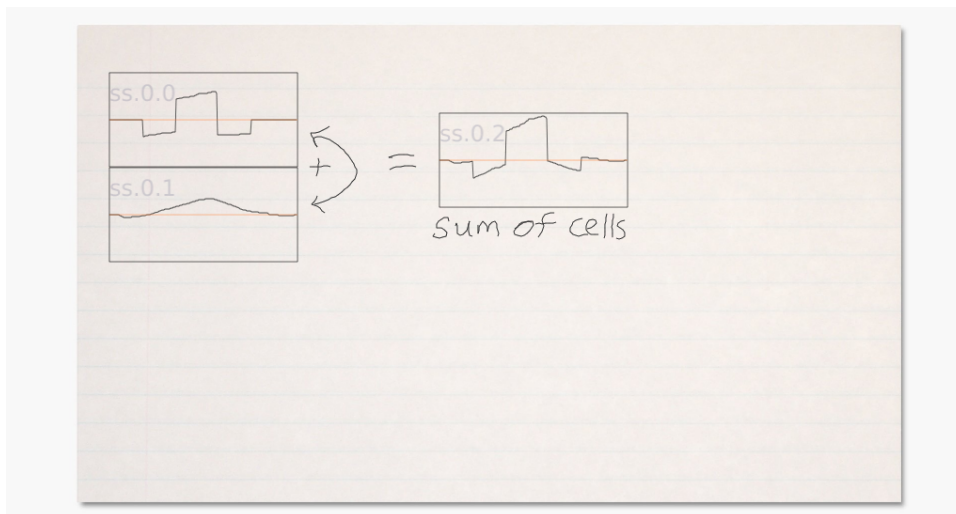 ss.0.0
+
ss.0.1
=
ss.0.2
sum of cells